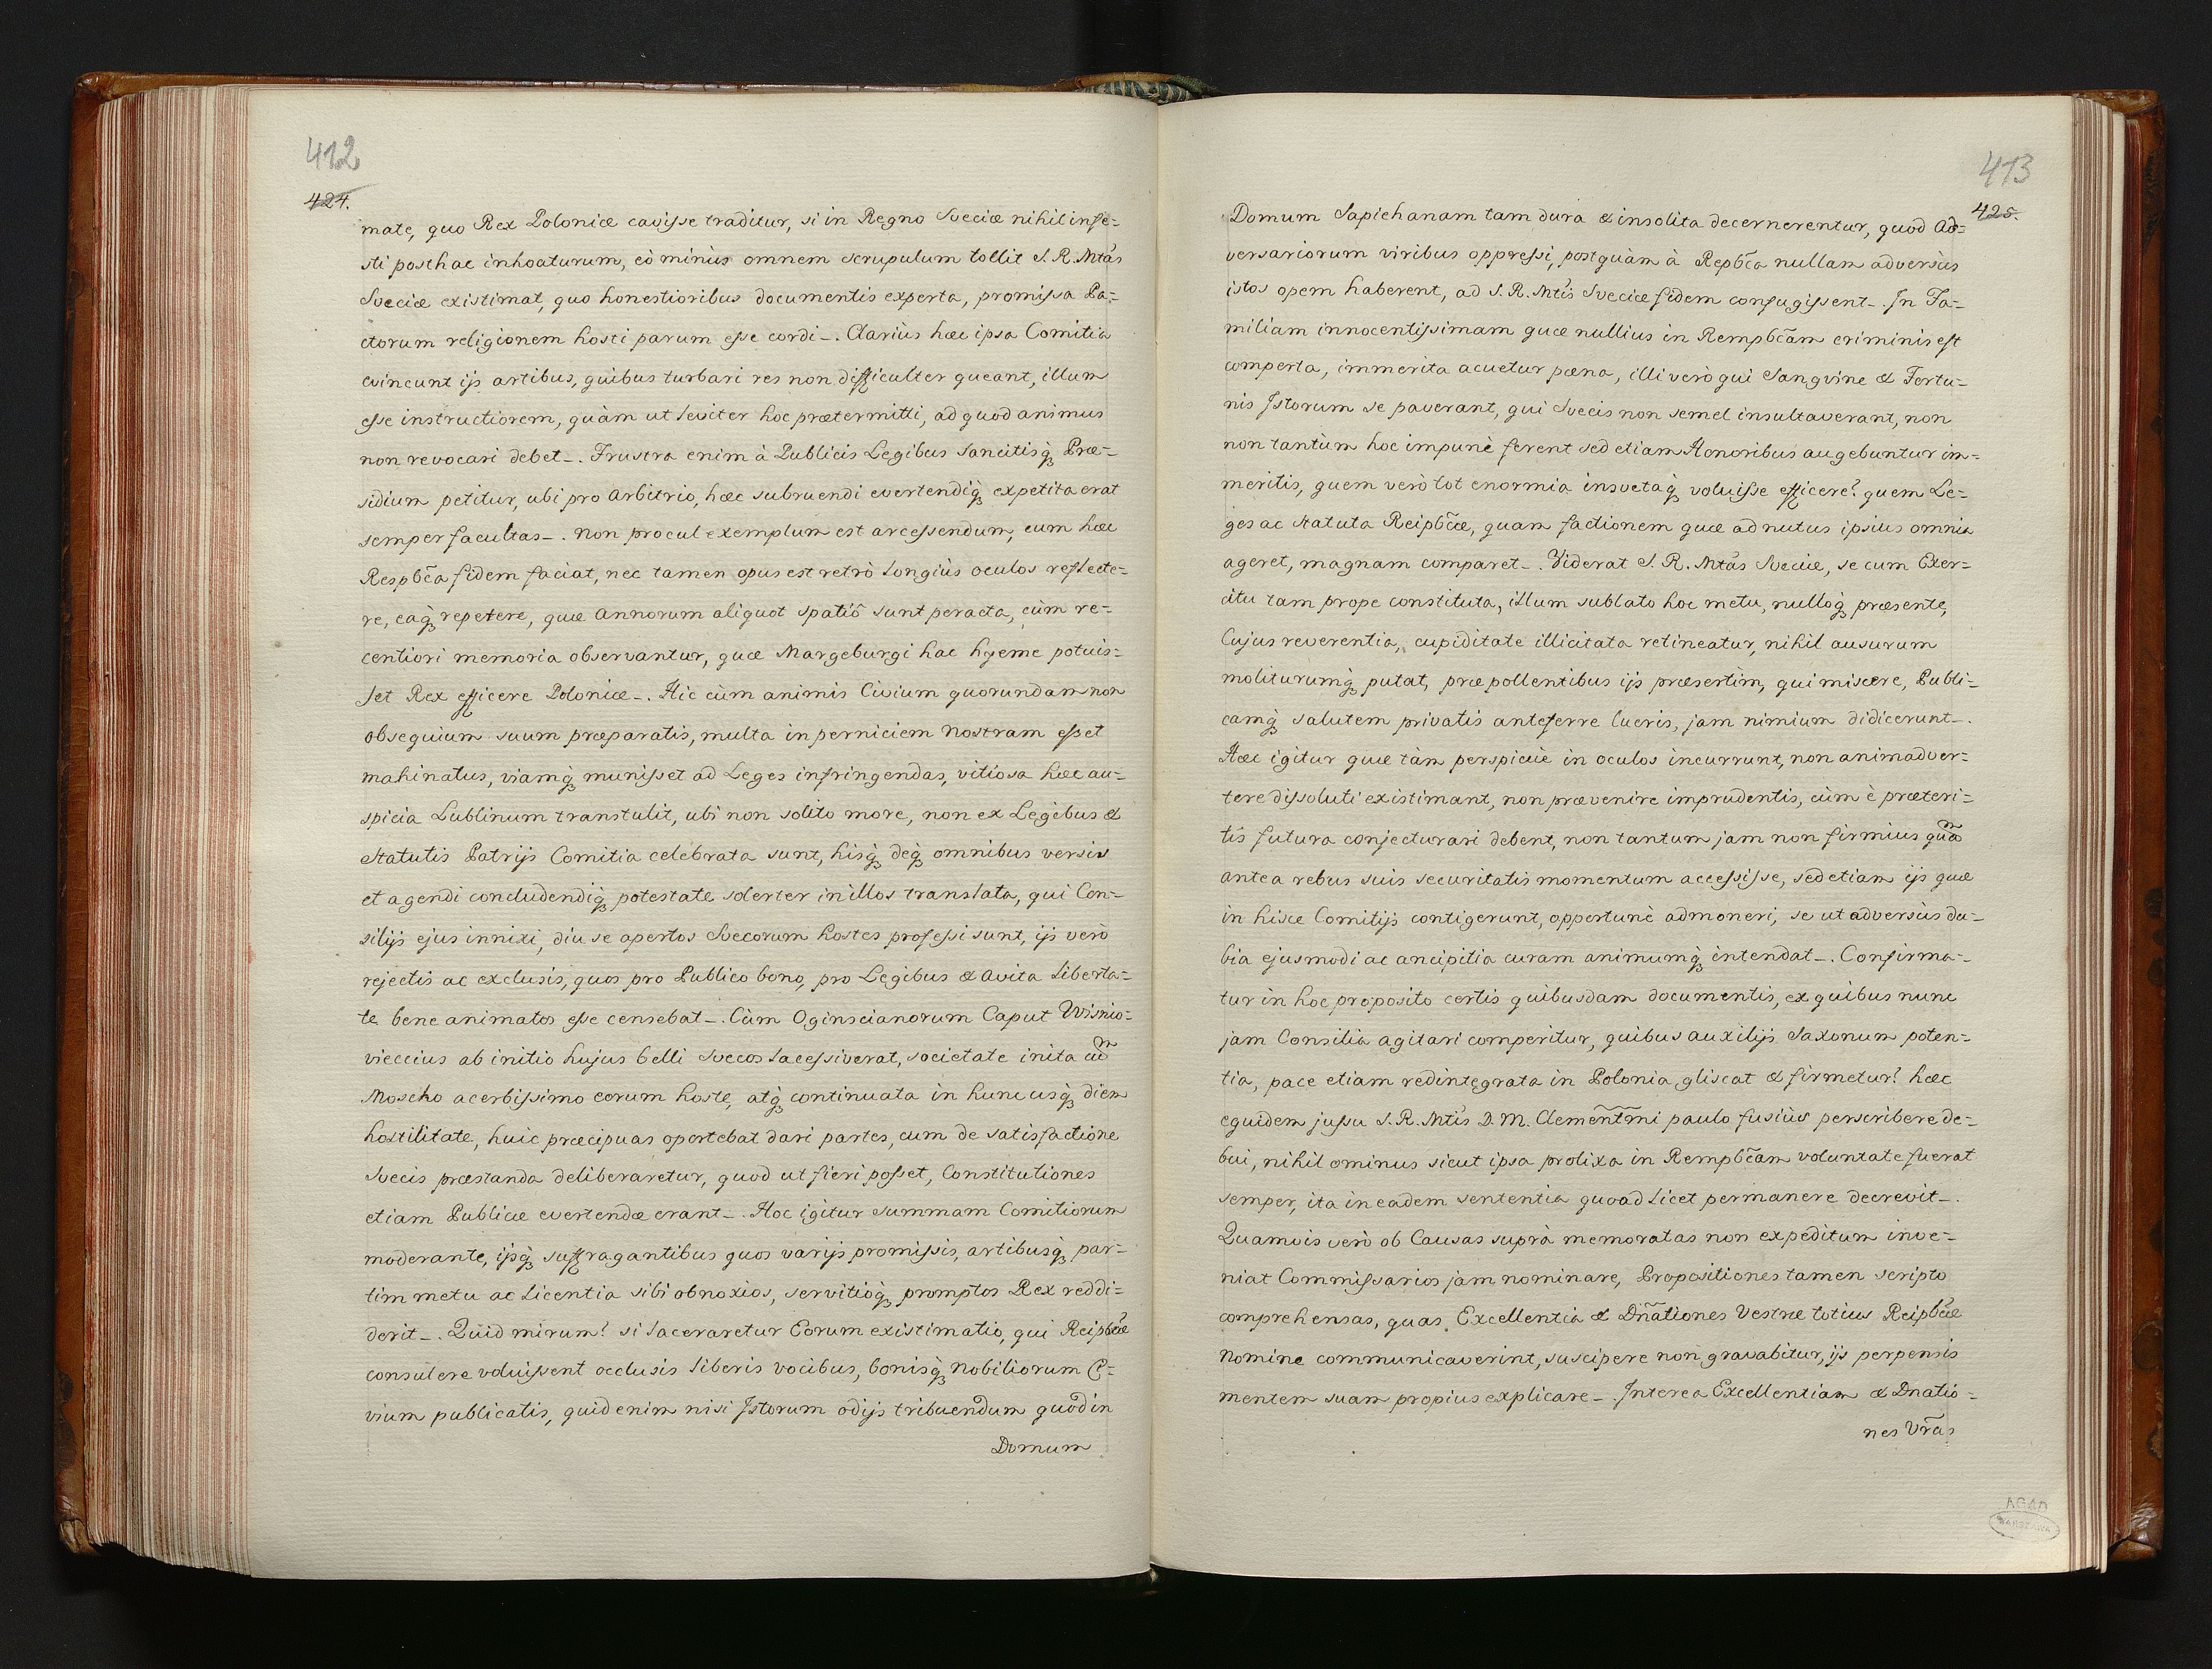 412
424.
mate, quo Rex Poloniæ cavisse traditur, si in Regno Sveciæ nihil infe=
sti posthac inhoaturum, eò minùs omnem scrupulum tollit S. R. Mtás
Sveciæ existimat, quo honestioribus documentis experta, promissa Pa=
ctorum religionem hosti parum esse cordi_. Clariùs hæc ipsa Comitia
evincunt ijs artibus, quibus turbari res non difficulter queant, illum
esse instructiorem, quàm ut leviter hoc prætermitti, ad quod animus
non revocari debet_. Frustra enim à Publicis Legibus Sancitisq; Præ=
sidium petitur, ubi pro arbitrio, hæc subruendi evertendiq; expetita erat
semper facultas_. Non procul exemplum est arcessendum, cum hæc
Respbĉa fidem faciat, nec tamen opus est retrò longiùs oculos reflecte=
re, eaq; repetere, quæ Annorum aliquot spatiô sunt peracta, cùm re=
centiori memoria observantur, quæ Margeburgi hac hyeme potuis=
set Rex efficere Poloniæ_. Hic cùm animis Civium quorundam non
obsequium suum præparatis, multa in perniciem Nostram esset
mahinatus, viamq; munisset ad Leges infringendas, vitiosa hæc au=
spicia Lublinum transtulit, ubi non solito more, non ex Legibus &
Statutis Patrijs Comitia celebrata sunt, hisq; deq; omnibus versis
et agendi concludendiq; potestate solerter in illos translata, qui Con=
silijs ejus innixi, diu se apertos Svecorum hostes professi sunt, ijs verò
rejectis ac exclusis, quos pro Publico bono, pro Legibus & Avita Liberta=
te bene animatos esse censebat_. Cùm Oginscianorum Caput Wisnio=
vieccius ab initio hujus belli Svecos lacessiverat, societate inita cum
Moscho acerbissimo eorum hoste, atq; continuata in hunc usq; diem
hostilitate, huic præcipuas oportebat dari partes, cum de satisfactione
Svecis præstanda deliberaretur, quod ut fieri posset, Constitutiones
etiam Publicæ evertendæ erant_. Hoc igitur summam Comitiorum
moderante, ijsq; suffragantibus quos varijs promissis, artibusq; par=
tim metu ac Licentia sibi obnoxios, servitioq; promptos Rex reddi=
derit_. Quid mirum? si laceraretur Eorum existimatio, qui Reipbĉæ
consulere voluissent occlusis liberis vocibus, bonisq; Nobiliorum Ci=
vium publicatis, quid enim nisi Istorum odijs tribuendum quod in
Domum
413
425.
Domum Sapiehanam tam dura & insolita decernerentur, quod Ad=
versariorum viribus oppressi, postquàm à Repbĉa nullam adversùs
istos opem haberent, ad S. R. Mtis Sveciæ fidem confugissent_. In Fa=
miliam innocentissimam quæ nullius in Rempbĉam criminis est
comperta, immerita acuetur pæna, illi verò qui Sangvine & Fortu=
nis Istorum se paverant, qui Svecis non semel insultaverant, non
non tantùm hoc impunè ferent sed etiam Honoribus augebuntur im=
meritis, quem verò tot enormia insvetaq; voluisse efficere? quem Le=
ges ac Statuta Reipbĉæ, quam factionem quæ ad nutus ipsius omnia
ageret, magnam comparet_. Viderat S. R. Mtás Sveciæ, se cum Exer=
citu tam prope constituta, illum sublato hoc metu, nulloq; præsente,
Cujus reverentia, cupiditate illicitata retineatur, nihil ausurum
moliturumq; putat, præpollentibus ijs præsertim, qui miscere, Publi=
camq; salutem privatis anteferre lucris, jam nimium didicerunt_.
Hæc igitur quæ tàm perspicuè in oculos incurrunt, non animadver=
tere dissoluti existimant, non prævenire imprudentis, cùm è præteri=
tis futura conjecturari debent, non tantum jam non firmius quam
antea rebus suis securitatis momentum accessisse, sed etiam ijs quæ
in hisce Comitijs contigerunt, opportunè admoneri, se ut adversùs du=
bia ejusmodi ac ancipitia curam animumq; intendat_. Confirma=
tur in hoc proposito certis quibusdam documentis, ex quibus nunc
jam Consilia agitari comperitur, quibus auxilijs Saxonum poten=
tia, pace etiam redintegrata in Polonia, gliscat & firmetur? hæc
equidem jussu S. R. Mtis D. M. Clementm̃i paulo fusiùs perscribere de=
bui, nihil ominus sicut ipsa prolixa in Rempbĉam voluntate fuerat
semper, ita in eadem sententia quoad licet permanere decrevit_.
Quamvis verò ob Causas suprà memoratas non expeditum inve=
niat Commissarios jam nominare, Propositiones tamen scripto
comprehensas, quas Excellentia & Dñationes Vestræ totius Reipbĉæ
Nomine communicaverint, suscipere non gravabitur, ijs perpensis
mentem suam propius explicare_. Interea Excellentiam & Dnatio=
nes Vrãs
AGAD
WARSZAWA